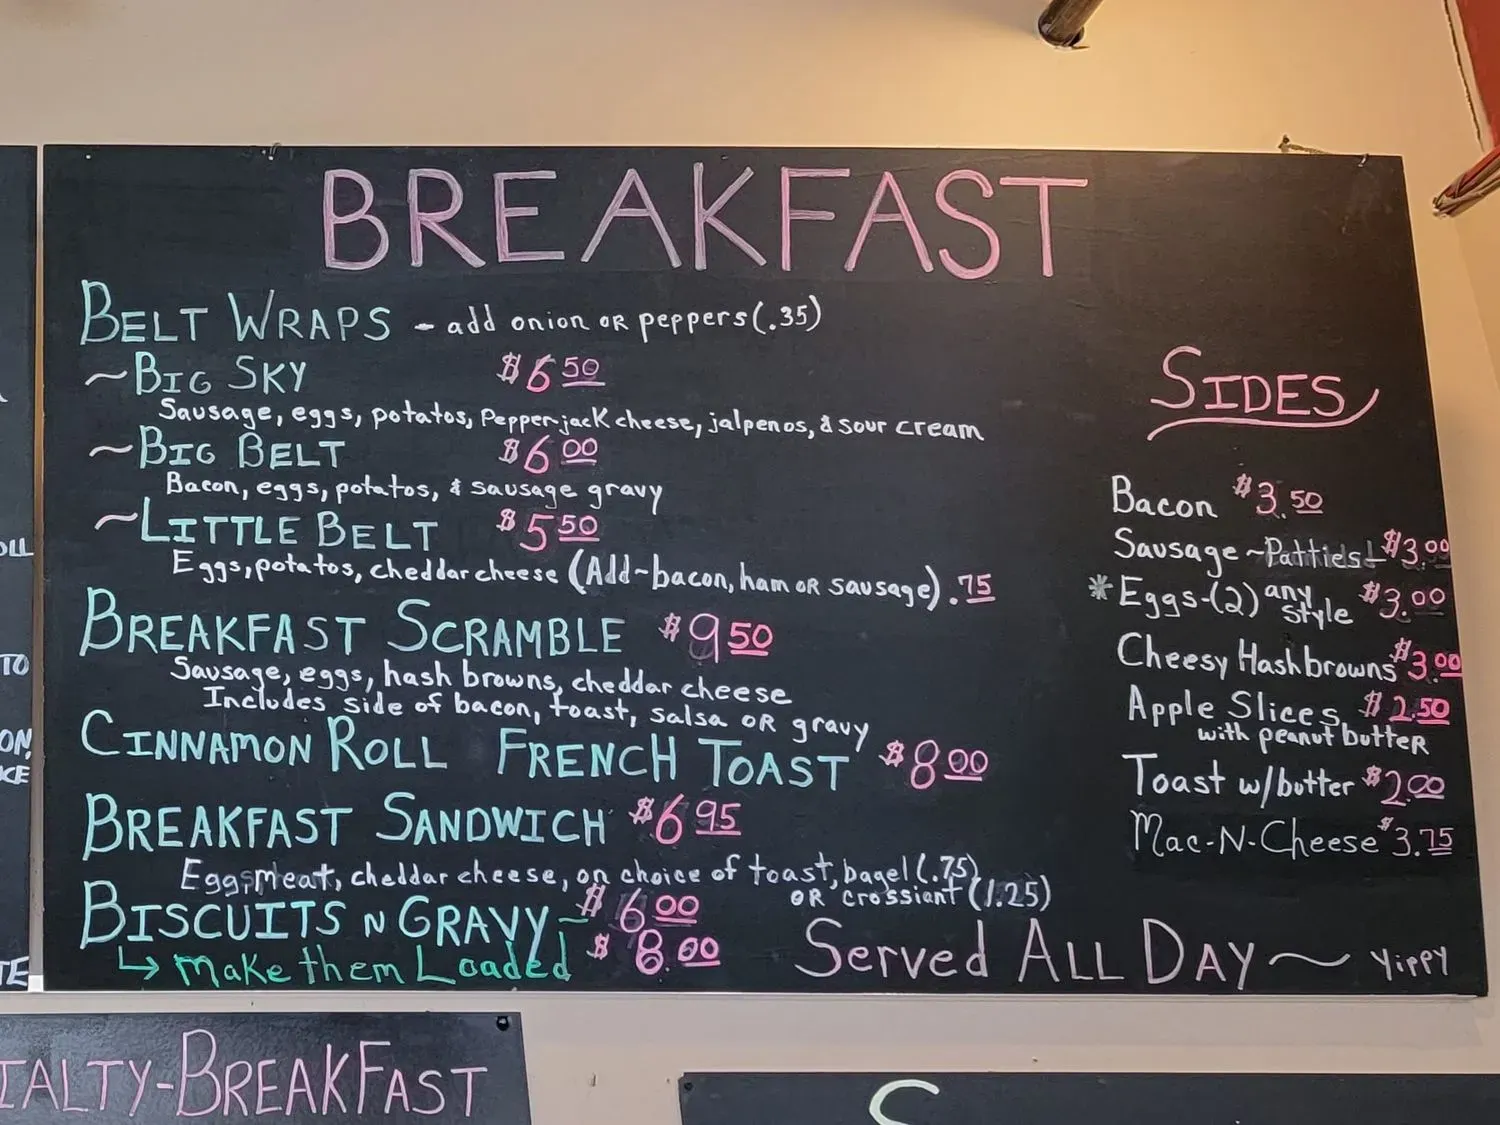 BREAKFAST
BELT WRAPS - add onion OR peppers (.35)
~BIG SKY $6 50
Sausage, eggs, potatos, Pepperjack cheese, jalpenos, & sour cream
~BIG BELT $6 00
Bacon, eggs, potatos, & sausage gravy
~LITTLE BELT $5 50
Eggs, potatos, cheddar cheese (Add-bacon, ham OR sausage) .75
BREAKFAST SCRAMBLE $9 50
Sausage, eggs, hash browns, cheddar cheese
Includes side of bacon, toast, salsa OR gravy
CINNAMON ROLL FRENCH TOAST $8 00
BREAKFAST SANDWICH $6 95
Egg, meat, cheddar cheese, on choice of toast, bagel (.75)
OR crossiant (1.25)
BISCUITS N GRAVY - $6 00
↳ Make them Loaded $8.00
SIDES
Bacon $3.50
Sausage ~ Patties $3.00
*Eggs-(2) any style $3.00
Cheesy Hashbrowns $3.00
Apple Slices $2.50
with peanut butter
Toast w/butter $2.00
Mac-N-Cheese $3.75
Served ALL DAY ~ yippy
OLL
TO
ON,
KE
TE
IALTY-BREAKFAST